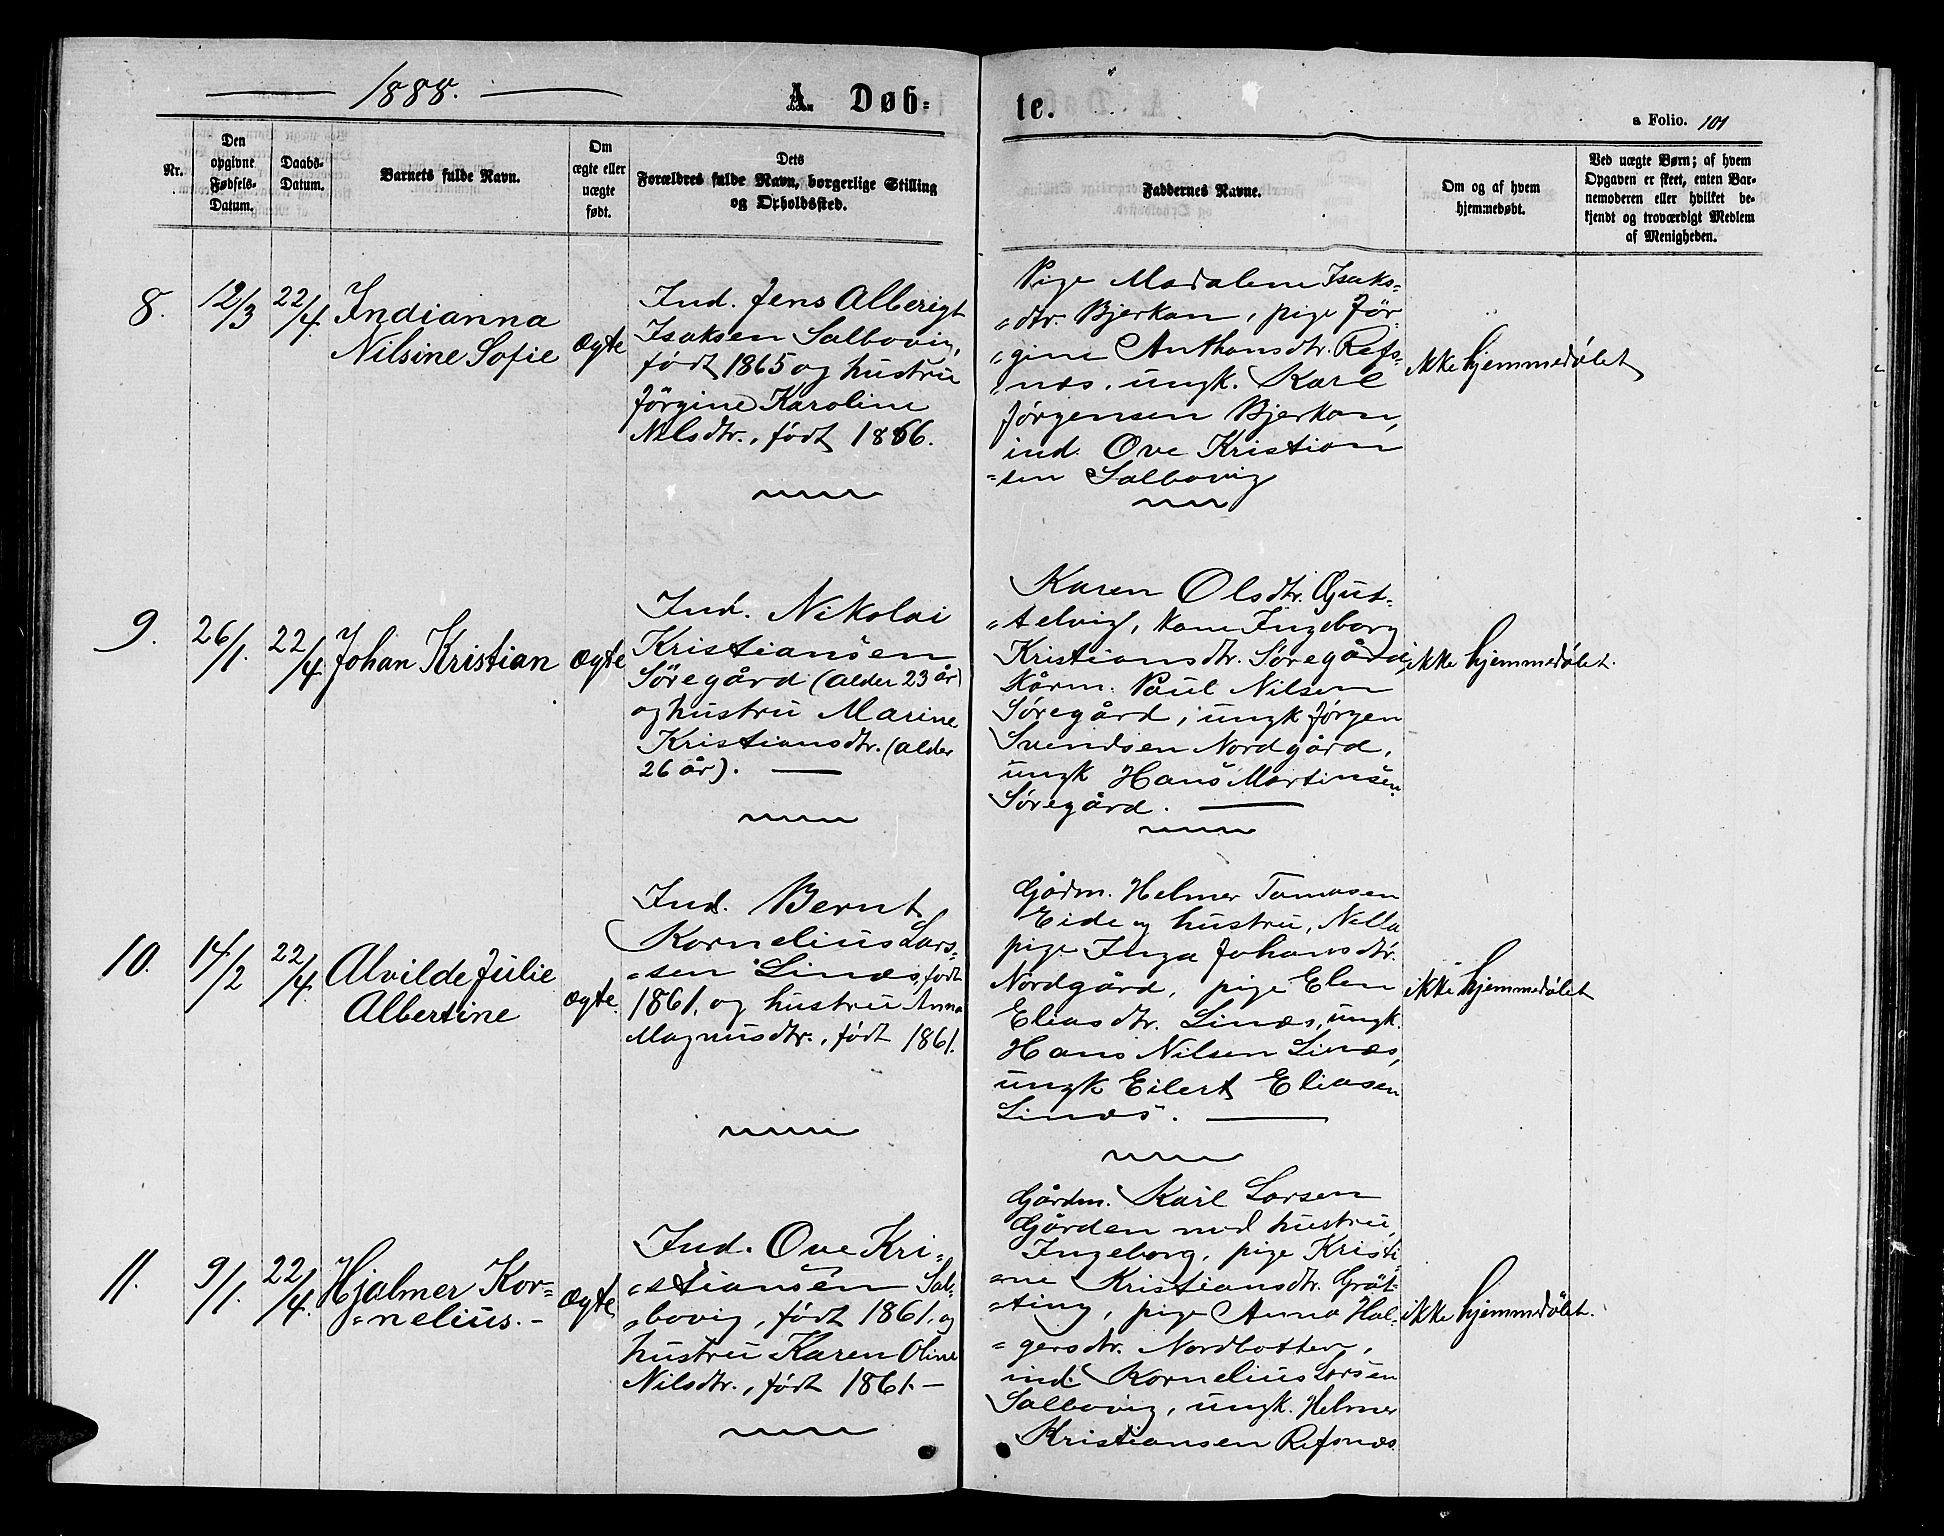 1888.
A. Døb-
te.
a Folio. 101
Nr.
Den
opgivne
Fødsels-
Datum.
Daabs-
Datum.
Barnets fulde Navn.
Om
ægte eller
uægte
født.
Dets
Forældres fulde Navn, borgerlige Stilling
og Opholdssted.
Faddernes Navne.
Om og af hvem
hjemmedøbt.
Ved uægte Børn; af hvem
Opgaven er skeet, enten Bar-
nemoderen eller hvilket be-
kjendt og troværdigt Medlem
af Menigheden.
8.
12/3
22/4.
Indianna
Nilsine Sofie
ægte
Ind. Jens Alberigt
Isaksen Salbovig,
født 1865 og hustru
Jörgine Karoline
Nilsdtr., født 1866.
Pige Madalene Isaks-
-dtr. Bjerkan, pige Jør-
-gine Anthonsdtr. Refs-
næs, ungk. Karl
Jörgensen Bjerkan,
ind. Ove Kristian
-sen Salbovig
ikke hjemmedøbt
9.
26/1.
22/4
Johan Kristian
ægte
Ind. Nikolai
Kristiansen
Söregård (alder 23 år)
og hustru Marine
Kristiansdtr. (alder
26 år).
Karen Olsdtr. Gjut-
-telvig, kone Ingeborg
Kristiansdtr. Søregård,
Kårm. Paul Nilsen
Søregård, ungk Jørgen
Svendsen Nordgård,
ungk Hans Martinsen
Søregård.
ikke hjemmedøbt.
10.
14/2
22/4.
Alvilde Julie
Albertine
ægte.
Ind. Bernt
Kornelius Lars-
-sen Linæs, født
1861, og hustru Anna
Magnusdtr., født 1861.
Gårdm. Helmer Tomasen
Eide og hustru, Nella
pige Inga Johansdtr.
Nordgård, pige Elen
Eliasdtr. Linæs, ungk.
Hans Nilsen Linæs,
ungk Eilert Eliasen
Linæs.
ikke hjemmedøbt
11.
9/1.
22/4.
Hjalmer Kor-
-nelius.-
ægte
Ind. Ove Kri-
-stiansen Sal-
-bovig, født 1861, og
hustru Karen Oline
Nilsdtr., født 1861.-
Gårdm. Karl Larsen
Gården med hustru,
Ingeborg, pige Kristi
-ne Kristiansdtr. Gröt-
-ting, pige Anna Hal-
-gersdtr. Nordbotten,
ind. Kornelius Larsen
Salbovig, ungk. Helmer
Kristiansen Refsnæs
ikke hjemmedøbt.